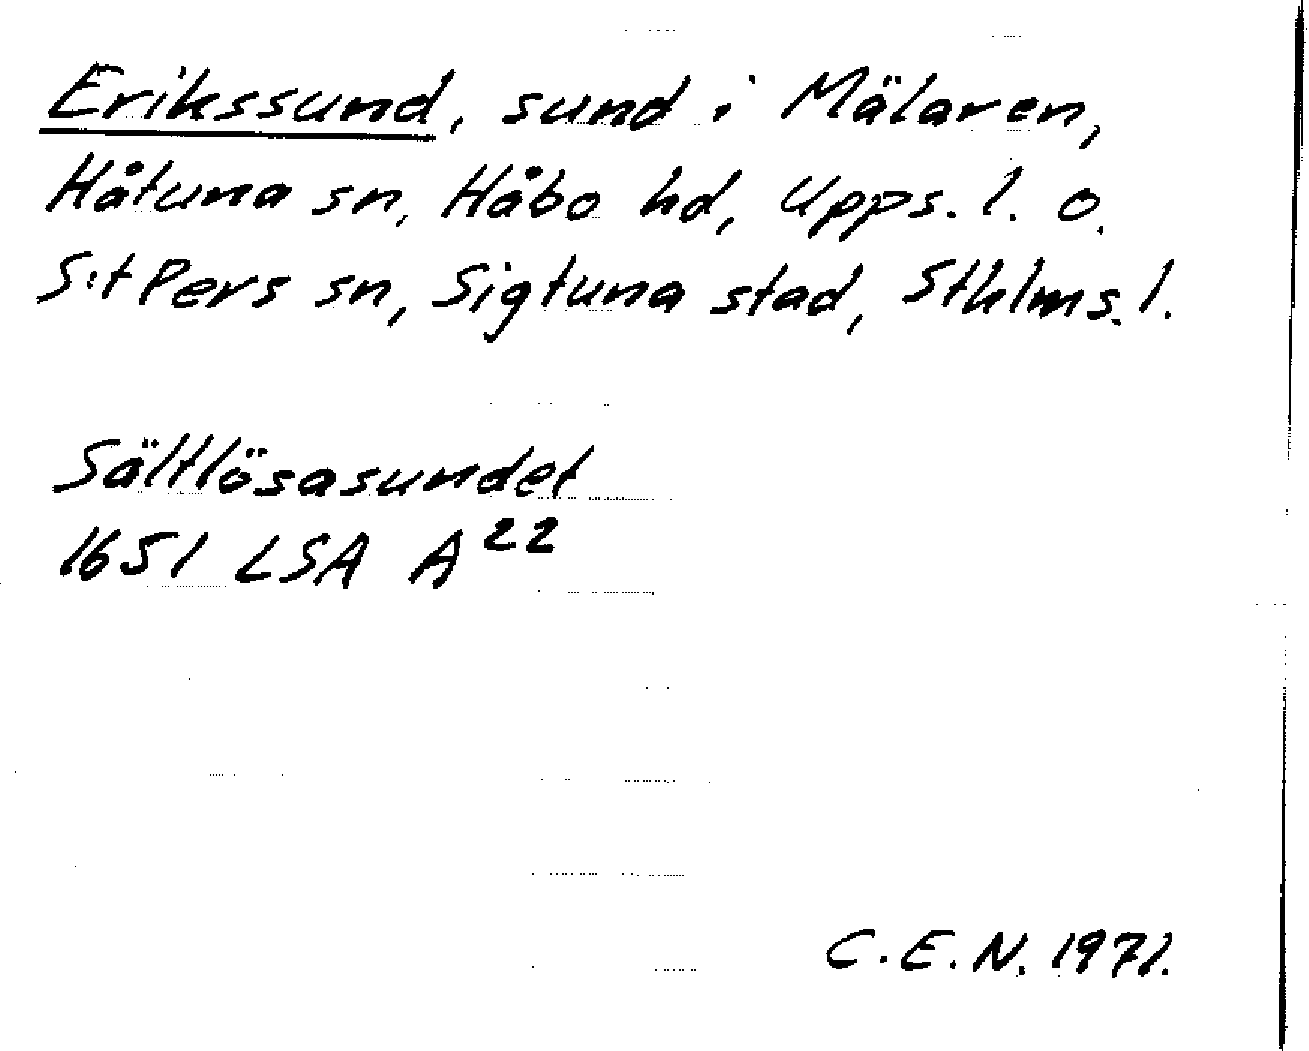 Erikssund, sund i Mälaren,
Håtuna sn, Håbo hd, Upps. l. o.
S:t Pers sn, Sigtuna stad, Sthlms. l.
Sältlösasundet
1651 LSA A22
C.E.N. 1971.